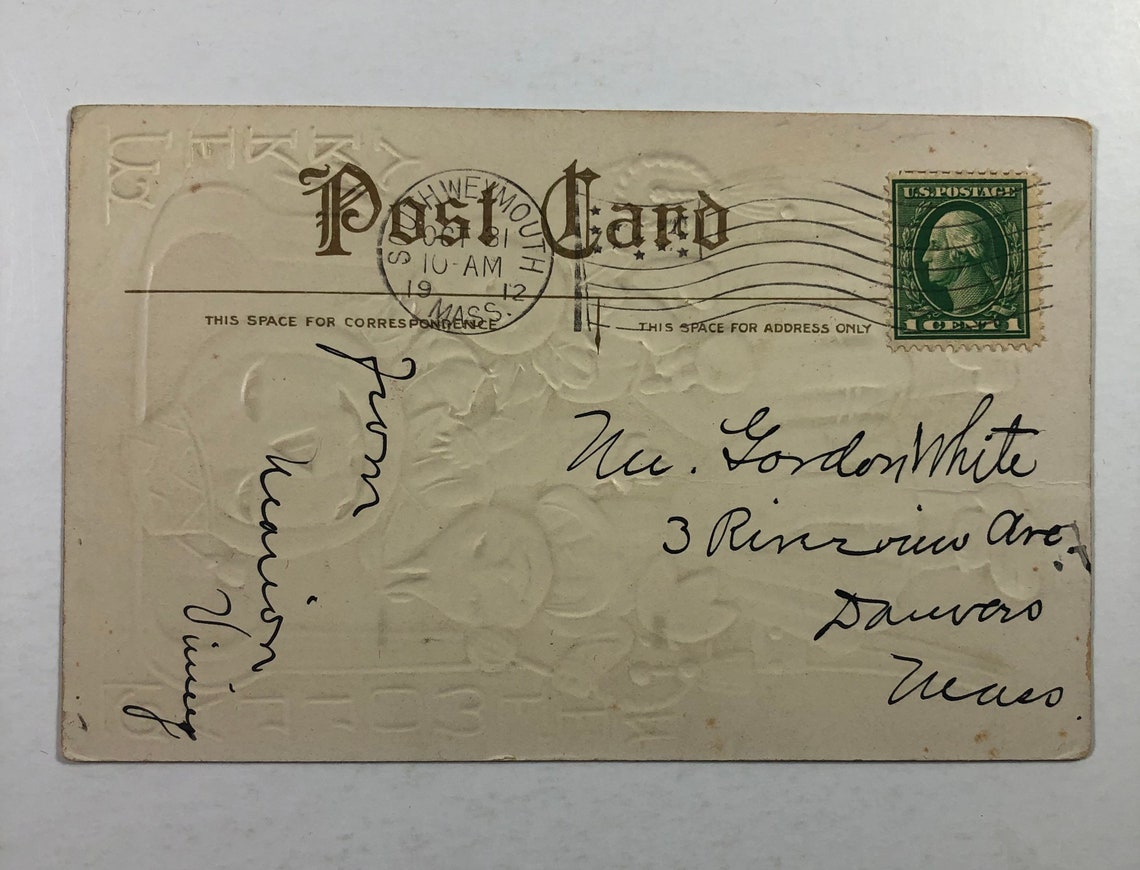 Post Card
SOUTH WEYMOUTH
OCT 31
10-AM
1912
MASS.
U.S. POSTAGE
1 CENT 1
THIS SPACE FOR CORRESPONDENCE
THIS SPACE FOR ADDRESS ONLY
from
Marion
Vining
Gordon White
3 Riverview Ave.
Danvers
Mass.
MERRY